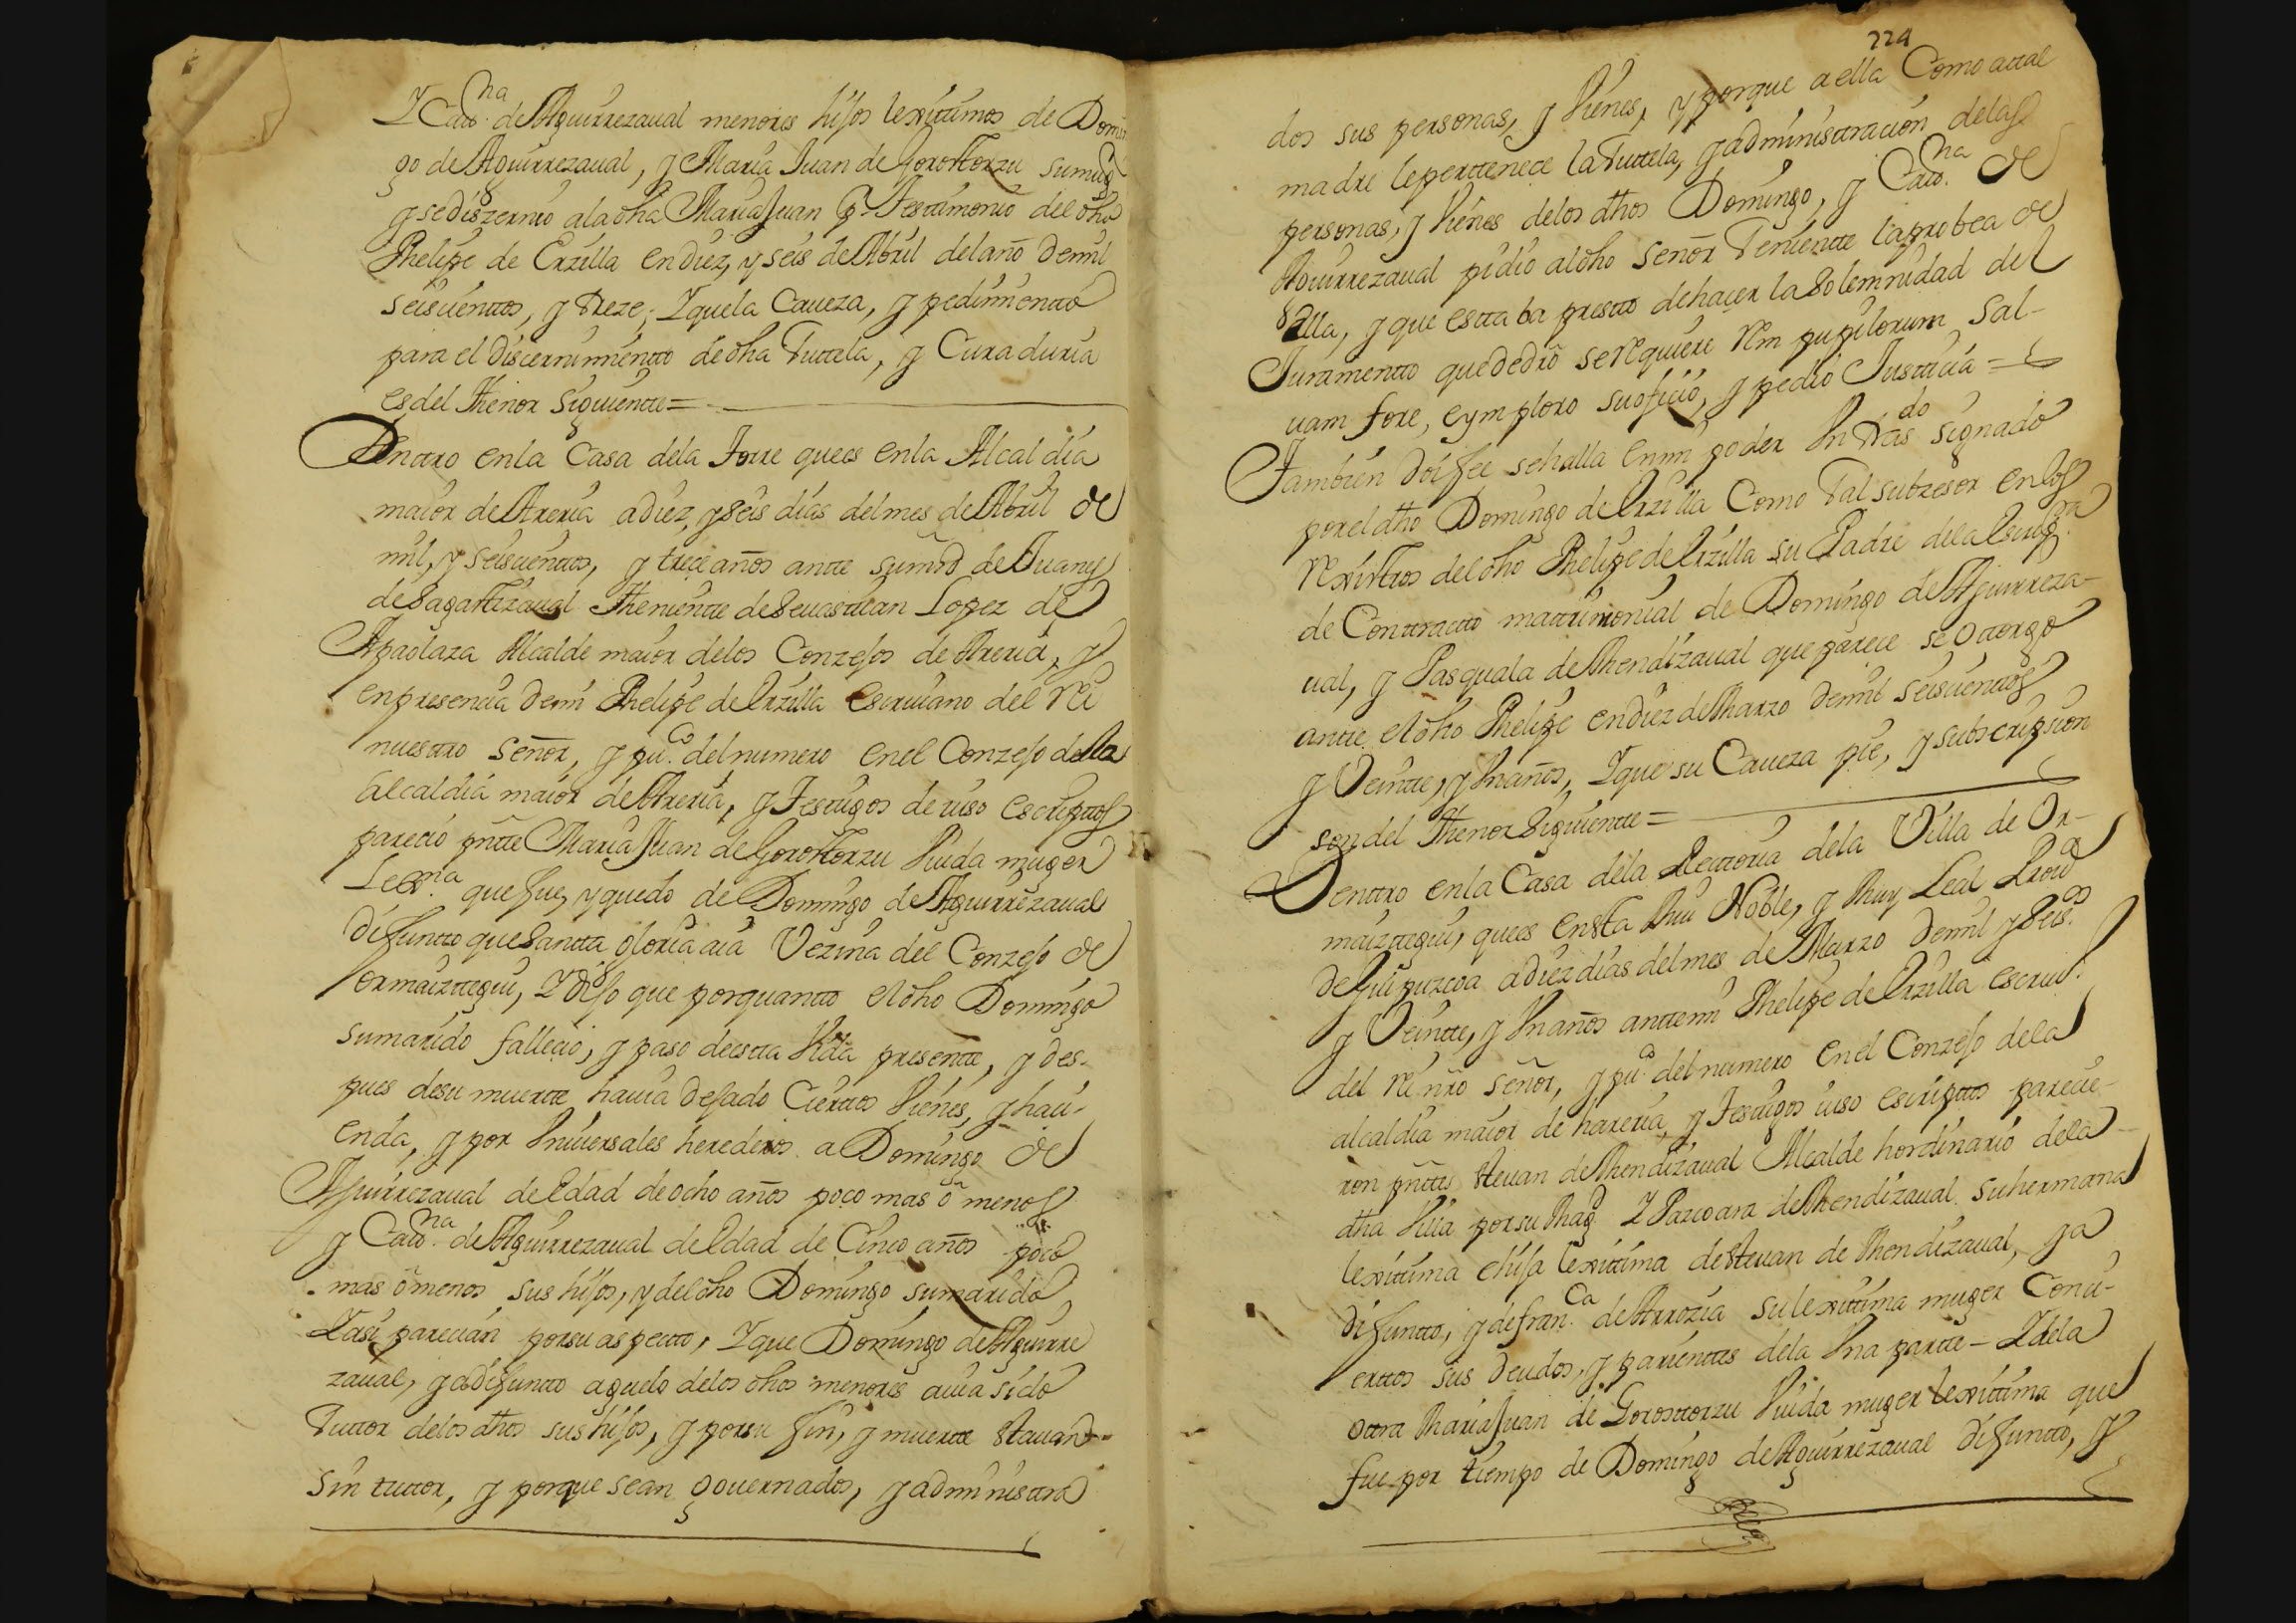 Y Cata.na de Aguirrezaual menores hijos lexittimos de Domin
go de Aguirrezaual, y Maria Juan de Gorostorzu sumug.
y se diszernio a la dha Maria Juan p.r Testimonio del dho
Phelipe de Erzilla en diez, y seis de Abril del año de mil
seiscientos, y treze; Y que la Caueza, y pedimiento
para el discernimientto de dha Tuttela, y Curaduria
es del Thenor siguientte=
Dentro en la Casa de la Torre que es en la Alcaldia
maior de Areria a diez, y seis dias del mes de Abril de
mil, y seiscientos, y trece años antte su mrd de Juanes
de Sagastizaual Thenientte de Seuasttian Lopez de
Apaolaza Alcalde maior de los Conzejos de Areria, y
en presencia de mi Phelipe de Erzilla escriuano del Rei
nuesttro señor, y pu.co del numero en el Conzejo de la
alcaldia maior de Areria, y Testigos de iuso escripttos
parecio pntte Maria Juan de Gorostorzu Viuda muger
Lexx.ma que fue, y quedo de Domingo de Aguirrezaual
difuntto que Santta gloria aia Vezina del Conzejo de
ormaizttegui, Y dijo que por quantto el dho Domingo
su marido fallecio, y paso de estta Vida presentte, y des-
pues de su muertte hauia dejado Ciertos Vienes, y haci-
enda, y por Vniuersales herederos a Domingo de
Aguirrezaual de Edad de ocho años poco mas ô menos
y Cata.na de Aguirrezaual de Edad de Cinco años poco
mas ô menos sus hijos, y del dho Domingo su marido
Y asi parecian por su aspectto, Y que Domingo de Aguirre
zaual, ya difuntto aguelo de los dhos menores auia sido
Tuttor de los dhos sus hijos, y por su fin, y muertte Stauan
sin tuttor, y porque sean gouernados, y administtra
224
dos sus personas, y Vienes, y porque a ella Como a ttal
madre le perttenece la Tuttela, y administtracion de las
personas, y Vienes de los dhos Domingo, y Cata.na de
Aguirrezaual pidio al dho señor Tenientte la probea de
Ella, y que esttaba prestto de hacer la Solemnidad del
Juramentto que de dro se requiere Rem pupilorum sal-
uam fore, e ymploro su oficio, y pedio Justticia=
Tambien doi fee se halla en mi poder Vn tras.do signado
por el dho Domingo de Erzilla Como Tal subzesor en los
rexistros del dho Phelipe de Erzilla su Padre de la Escrip.ra
de Conttractto mattrimonial de Domingo de Aguirreza-
ual, y Pasquala de Mendizaual que parece se ottorgo
antte el dho Phelipe en diez de Marzo de mil seiscienttos
y Veintte, y Vn años, Y que su Caueza pie, y subscripsion
son del Thenor Siguientte=
Denttro en la Casa de la Recttoria de la Villa de Or-
maizttegui, que es en Sta Mui Noble, y Muy Leal Prou.a
de Guipuzcoa a diez dias del mes de Marzo de mil y Seis.os
y Veintte, y Vn años antte mi Phelipe de Erzilla escriu.
del Rei nro señor, y pu.co del numero en el Conzejo de la
alcaldia maior de hareria, y Testigos iuso escripttos parecie-
ron pnttes Steuan de Mendizaual Alcalde hordinario de la
dha Villa por su Mag.d Y Pazcoara de Mendizaual su hermana
lexittima e hija lexittima de Steuan de Mendizaual, ya
difuntto, y de fran.ca de Arrozia su lexittima muger Conci-
erttos sus deudos, y parienttes de la Vna partte - Y de la
ottra Maria Juan de Gorosttorzu Viuda muger lexittima que
fue por tiempo de Domingo de Aguirrezaual difuntto, y